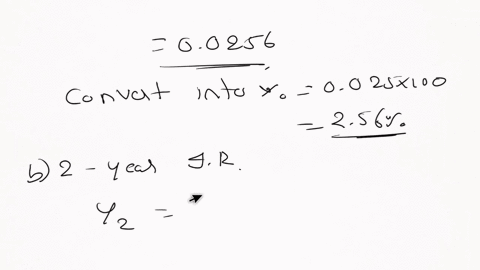 = 0.0256
Convert into %. = 0.025×100
= 2.56%.
b) 2 - year I.R.
Y₂ =